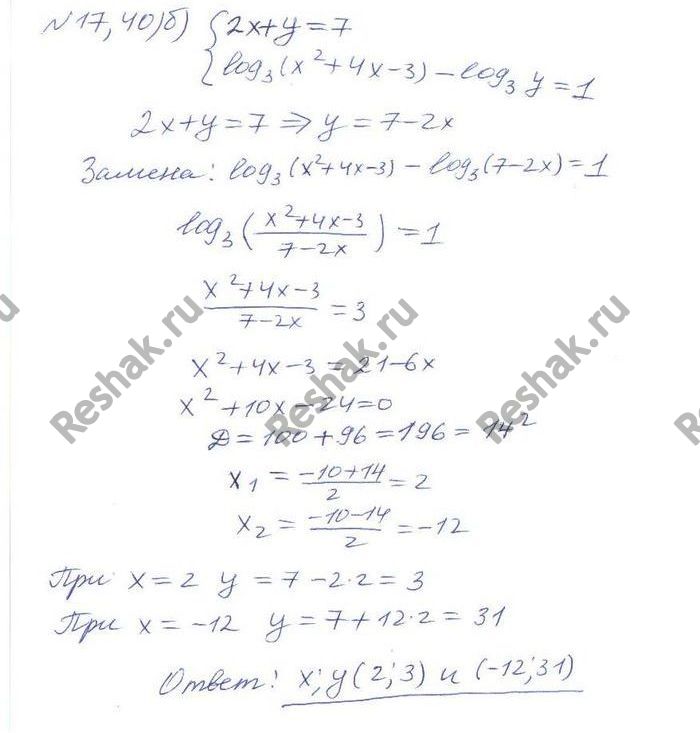 №17,40)б) { 2x+y=7
log₃(x²+4x-3) - log₃ y = 1
2x+y=7 ⇒ y=7-2x
Замена: log₃(x²+4x-3) - log₃(7-2x)=1
log₃((x²+4x-3)/(7-2x)) = 1
(x²+4x-3)/(7-2x) = 3
x²+4x-3 = 21-6x
x²+10x-24=0
Д = 100+96=196=14²
x₁ = (-10+14)/2 = 2
x₂ = (-10-14)/2 = -12
При x=2 y=7-2·2=3
При x=-12 y=7+12·2=31
Ответ: x;y(2;3) и (-12;31)
Reshak.ru
Reshak.ru
Reshak.ru